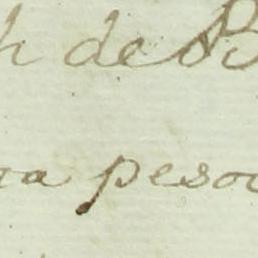 h de B
ca peso